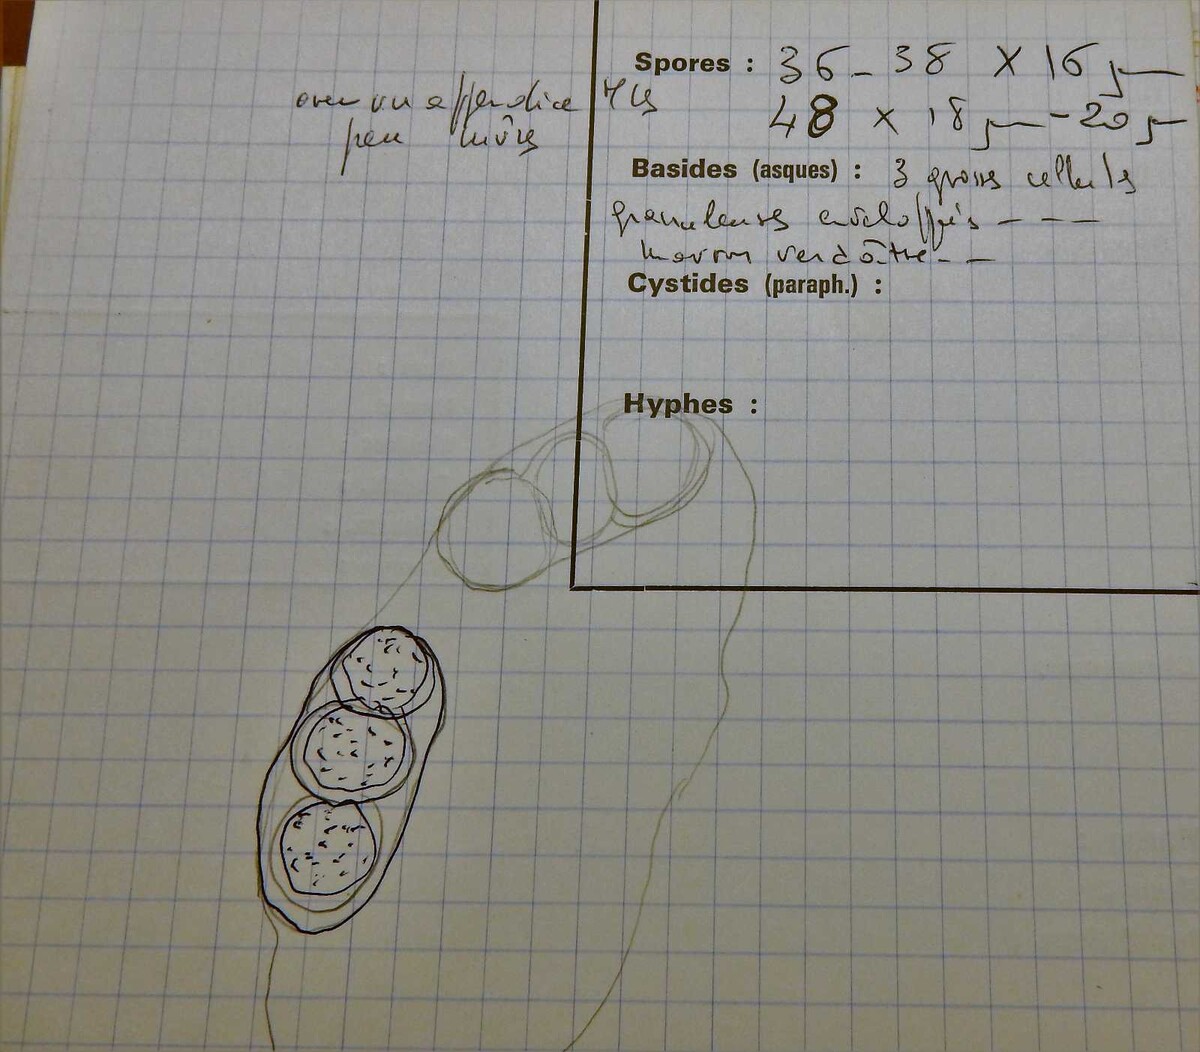 Spores : 36 - 38 X 16 µ
48 x 18 µ - 20 µ
avec un appendice
peu mûres
Basides (asques) : 3 grosses cellules
granuleuses enveloppées - - -
marron verdâtre - -
Cystides (paraph.) :
Hyphes :